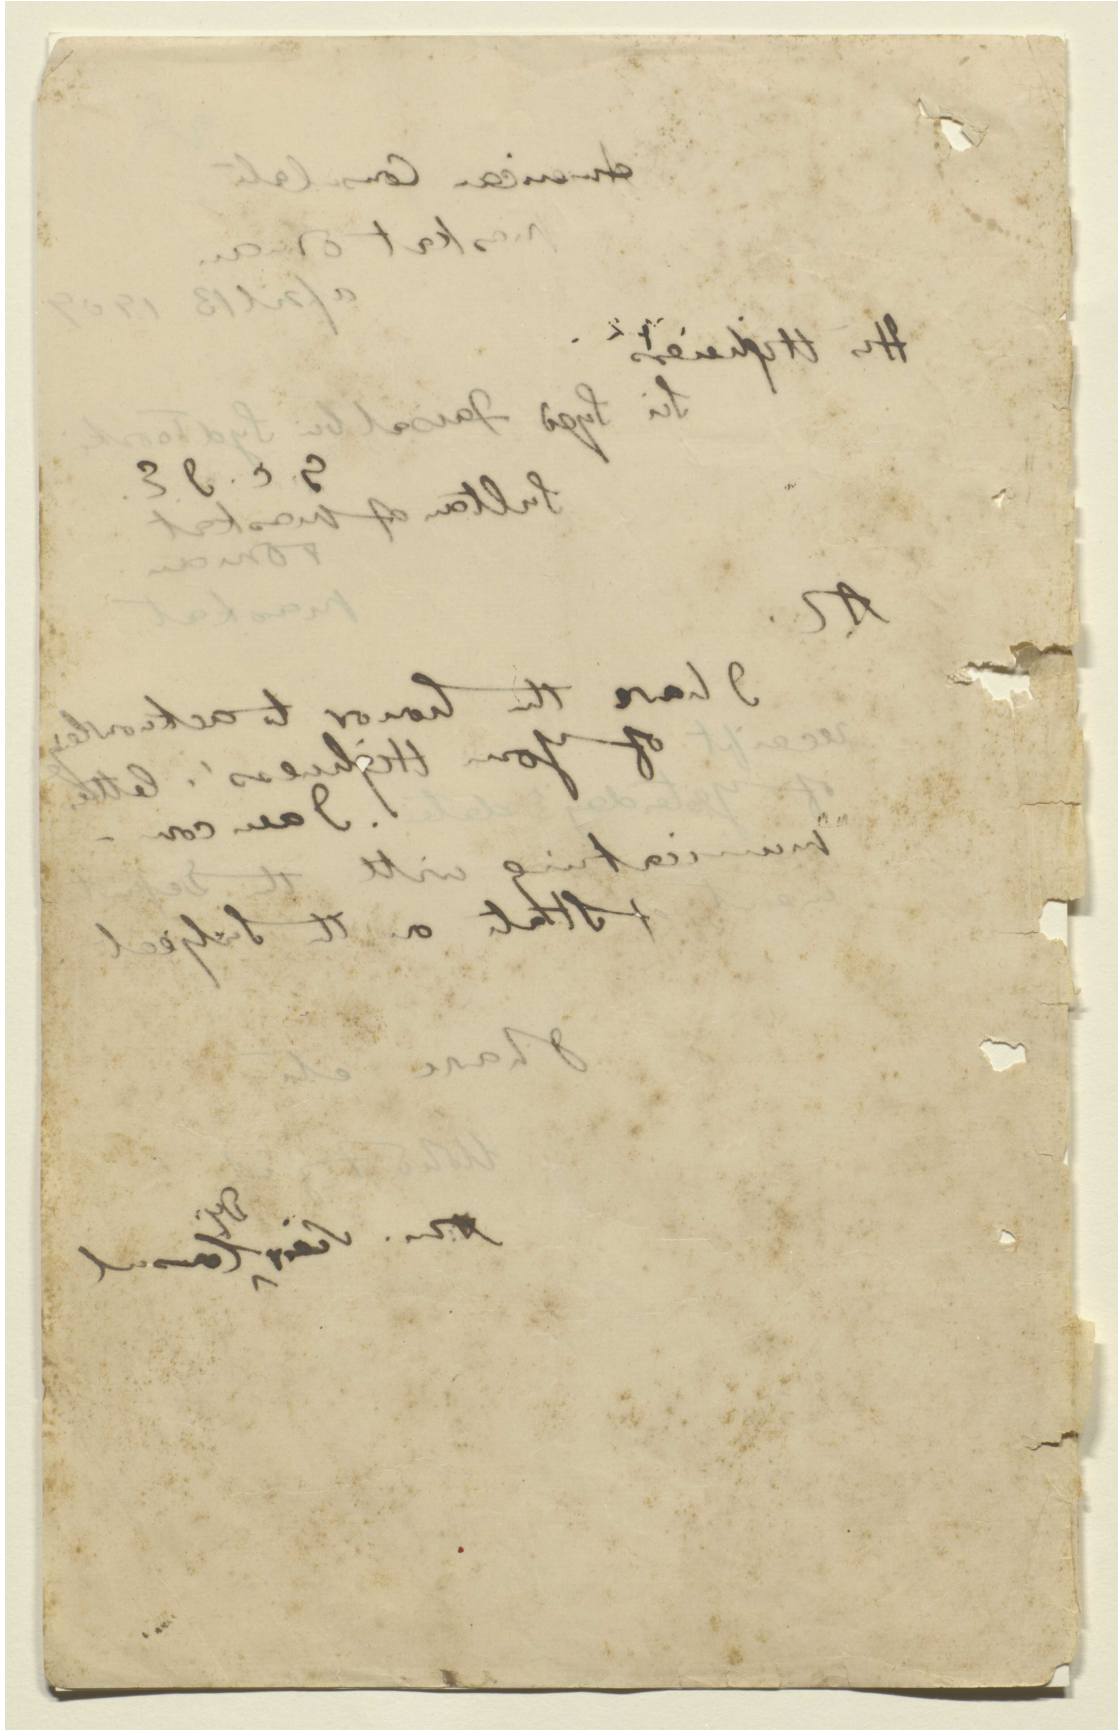 American Consulate
Maskat Oman
April 13 1909
His Highness
Sir Syed Faisal bin Syd Toorki
G. C. I. E.
Sultan of Maskat
& Oman
Maskat
I have the honor to acknowledge
receipt of your Highness' letter
of yesterday's date. I am com-
municating with the Dept
of State on the subject
I have etc
Am. Vice Consul